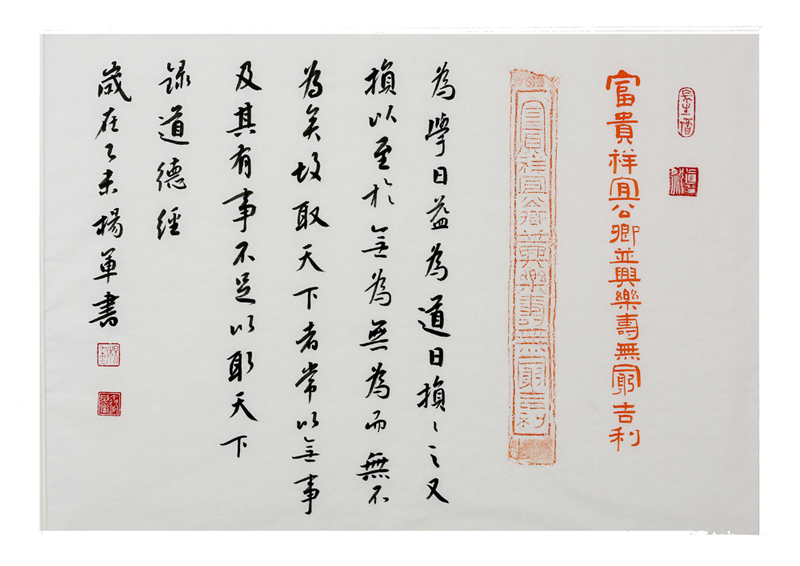 富貴祥宜公卿並興樂壽無窮吉利
富貴祥宜公卿並興樂壽無窮吉利
為學日益為道日損〻之又
損以至於無為無為而無不
為矣故取天下者常以無事
及其有事不足以取天下
錄道德經
歲在乙未楊軍書